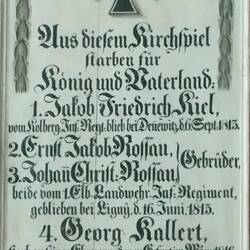 Aus diesem Kirchspiel
starben für
König und Vaterland:
1. Jakob Friedrich Kiel,
vom Kolberg. Inf. Regt. blieb bei Denewitz, d. 6. Sept. 1813.
2. Ernst Jakob Rossau,
3. Johañ Christ. Rossau,
Gebrüder,
beide vom 1. Elb. Landwehr Inf: Regiment,
geblieben bei Ligny, d. 16. Juni. 1815.
4. Georg Kallert,